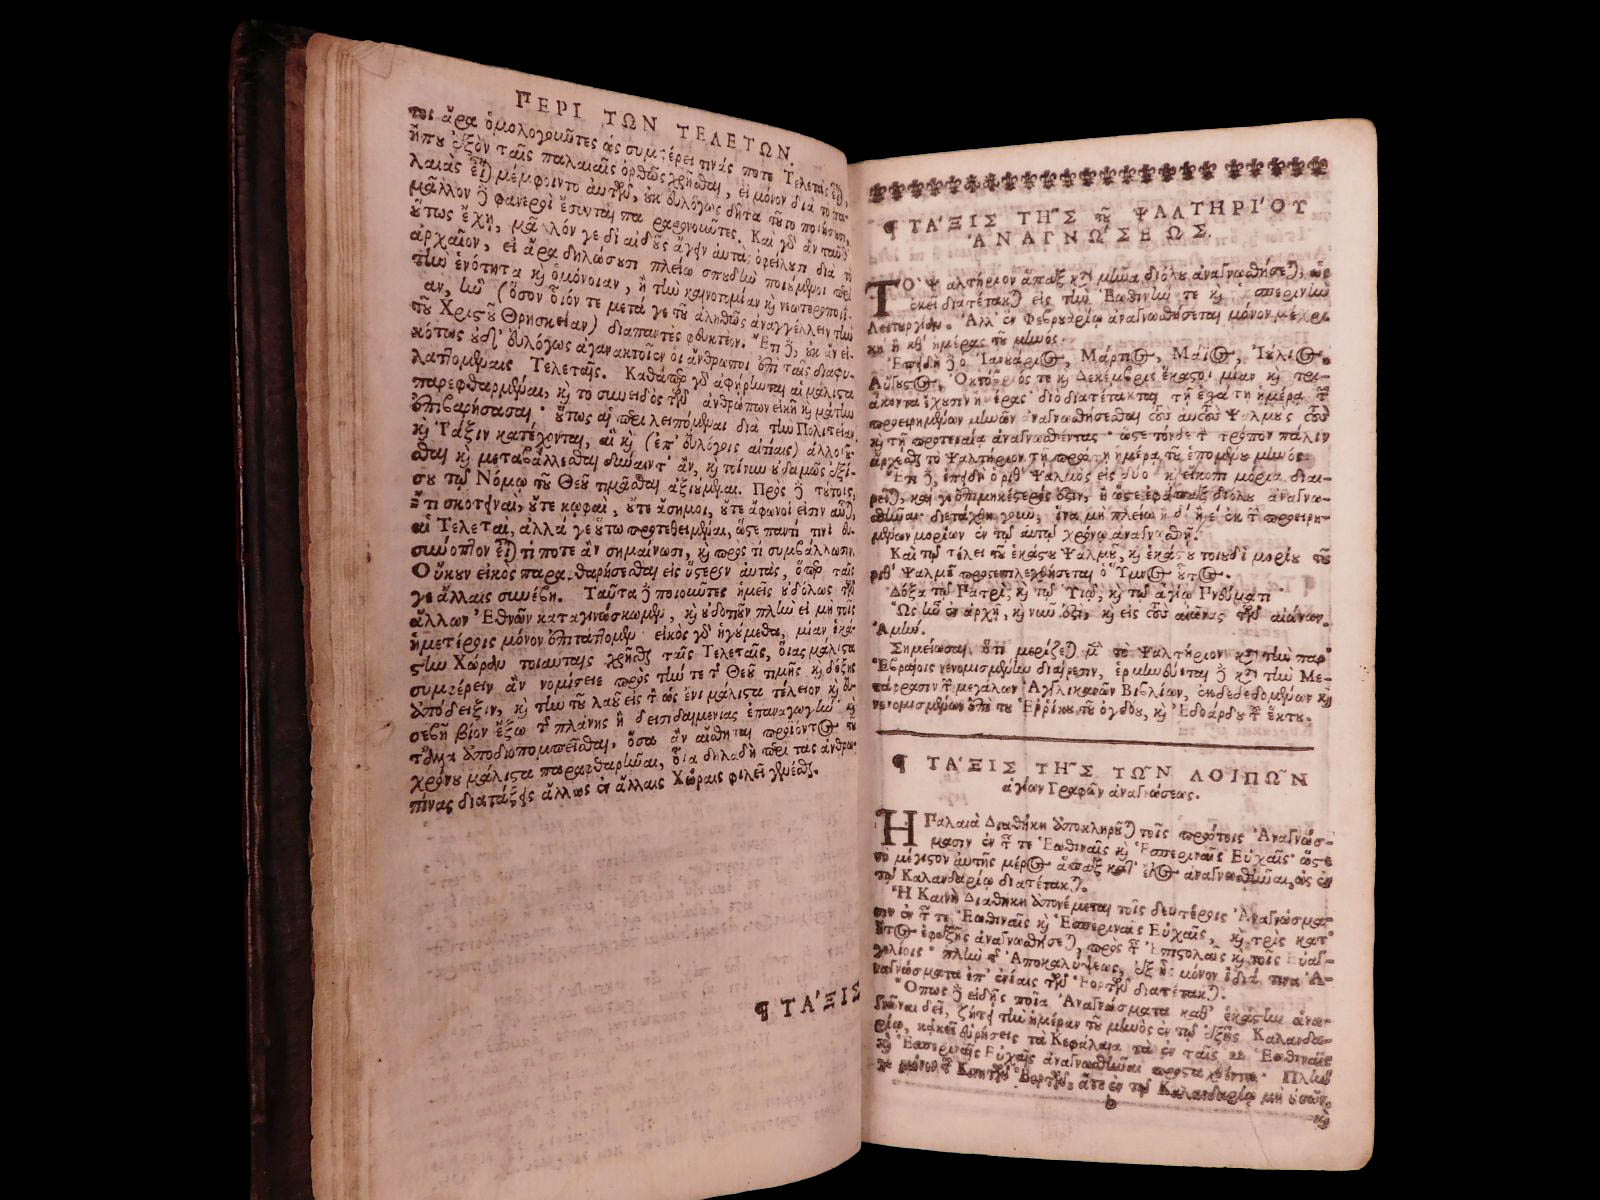 ΠΕΡΙ ΤΩΝ ΤΕΛΕΤΩΝ.
τοι ἄρα ὁμολογοῦντες ὡς συμφέρει τινάς ποτε Τελετὰς
ἤπου ἐξὸν ταῖς παλαιαῖς ὀρθῶς χρῆσθαι, εἰ μόνον διὰ τὸ πα-
λαιὰς εἶναι μέμφοιντο αὐτῶν, οὐκ εὐλόγως δῆτα τοῦτο ποιήσουσι,
μᾶλλον δὲ φανεροὶ ἔσονται παραφρονοῦντες. Καὶ γὰρ ἂν ταῦθ'
οὕτως ἔχῃ, μᾶλλόν γε δι' αἰδοῦς ἄγειν αὐτὰ ὀφείλουσι διὰ τὸ
ἀρχαῖον, εἰ ἄρα δηλώσουσι πλείω σπουδὴν ποιούμενοι περὶ
τὴν ἑνότητα καὶ ὁμόνοιαν, ἢ τὴν καινοτομίαν καὶ νεωτεροποιί-
αν, ἣν (ὅσον οἷόν τε μετά γε τοῦ ἀληθῶς ἀναγγέλλειν τὴν
τοῦ Χριστοῦ Θρησκείαν) διαπαντὸς φευκτέον. Ἔτι δὲ, οὐκ ἂν εἰ-
κότως οὐδ' εὐλόγως ἀγανακτοῖεν οἱ ἄνθρωποι ἐπὶ ταῖς διαφυ-
λαττομέναις Τελεταῖς. Καθάπερ γὰρ ἀφῄρηνται αἱ μάλιστα
παρεφθαρμέναι, καὶ τὸ συνειδὸς τῶν ἀνθρώπων εἰκῆ καὶ μάτην
ἐπιβαρήσασαι· οὕτως αἱ περιλειπόμεναι διὰ τὴν Πολιτείαν
καὶ Τάξιν κατέχονται, αἳ καὶ (ἐπ' εὐλόγοις αἰτίαις) ἀλλοιοῦ-
σθαι καὶ μεταβάλλεσθαι δύναιντ' ἂν, καὶ τοίνυν οὐδαμῶς ἐξί-
σου τῷ Νόμῳ τοῦ Θεοῦ τιμᾶσθαι ἀξιούμεναι. Πρὸς δὲ τούτοις,
ὅτι σκοτειναὶ, οὔτε κωφαὶ, οὔτε ἄσημοι, οὔτε ἄφωνοί εἰσιν αὗται
αἱ Τελεταὶ, ἀλλά γε οὕτω προτεθειμέναι, ὥστε παντί τινι εὐ-
σύνοπτον εἶναι τί ποτε ἂν σημαίνωσι, καὶ πρὸς τί συμβάλλωσιν.
Οὔκουν εἰκὸς παραφθαρήσεσθαι εἰς ὕστερον αὐτὰς, ὅπερ ταῖς
γε ἄλλαις συνέβη. Ταῦτα δὲ ποιοῦντες ἡμεῖς οὐδόλως τῶν
ἄλλων Ἐθνῶν καταγινώσκωμεν, καὶ οὐδοτιοῦν πλὴν εἰ μὴ τοῖς
ἡμετέροις μόνον ἐπιτάττομεν εἰκὸς γὰρ ἡγούμεθα, μίαν ἑκά-
στην Χώραν τοιαύταις χρῆσθαι ταῖς Τελεταῖς, ὅιας μάλιστα
συμφέρειν ἂν νομίσειε πρὸς τήν τε τοῦ Θεοῦ τιμῆς καὶ δόξης
ἀπόδειξιν, καὶ τὴν τοῦ λαοῦ εἰς τὸν ὡς ἔνι μάλιστα τέλειον καὶ εὐ-
σεβῆ βίον ἔξω τῆς πλάνης ἢ δεισιδαιμονίας ἐπαναγωγὴν· καὶ
ἀποδιοπομπεῖσθαι, ὅσα ἂν αἴσθηται προϊόντος τοῦ
χρόνου μάλιστα παραφθαρῆναι, οἷα δηλαδὴ περὶ τὰς ἀνθρω-
πίνας διατάξεις ἄλλως ἐν ἄλλαις Χώραις φιλεῖ γενέσθαι.
¶ ΤΑ'ΞΙΣ
¶ ΤΑ'ΞΙΣ ΤΗ͂Σ τοῦ ΨΑΛΤΗΡΙ'ΟΥ
ἈΝΑΓΝΩ'ΣΕΩΣ.
ΤΟ Ψαλτήριον ἅπαξ κατὰ μῆνα διόλου ἀναγνωσθήσεται, ὡς
ἐκεῖ διατέτακται εἰς τὴν Ἑωθινήν τε καὶ Ἑσπερινὴν
Λειτουργίαν. Ἀλλ' ἐν Φεβρουαρίῳ ἀναγνωσθήσεται μόνον μέχρι
κηʹ ἢ κθʹ ἡμέρας τοῦ μηνός.
Ἐπειδὴ δὲ ὁ Ἰανουάριος, Μάρτιος, Μάϊος, Ἰούλιος,
Αὔγουστος, Ὀκτώβριός τε καὶ Δεκέμβριος ἕκαστοι μίαν καὶ τρι-
άκοντα ἔχουσιν ἡμέρας· διὸ διατέτακται τῇ ἐσχάτῃ ἡμέρᾳ τῶν
προειρημένων μηνῶν ἀναγνωσθήσεσθαι τοὺς αὐτοὺς Ψαλμοὺς τοὺς
καὶ τῇ προτεραίᾳ ἀναγνωσθέντας· ὥστε τόνδε τὸν τρόπον πάλιν
ἄρχεσθαι τὸ Ψαλτήριον τῇ πρώτῃ ἡμέρᾳ τοῦ ἑπομένου μηνός.
Ἔτι δὲ, ἐπειδὴ ὁ ριθʹ Ψαλμὸς εἰς δύο καὶ εἴκοσι μόρια διαι-
ρεῖται, καί γε ἐπιμηκέστερός ἐστιν, ἢ ὥστε ἐφάπαξ διόλου ἀναγνω-
σθῆναι· διετάχθη γοῦν, ἵνα μὴ πλείω ἢ δʹ ἢ εʹ ἐκ τῶν προειρη-
μένων μορίων ἐν τῷ αὐτῷ χρόνῳ ἀναγνωσθῇ.
Καὶ τῷ τέλει τοῦ ἑκάστου Ψαλμοῦ, καὶ ἑκάστου τοιουδὶ μορίου τοῦ
ριθʹ Ψαλμοῦ προσεπιλεχθήσεται ὁ Ὕμνος οὗτος.
Δόξα τῷ Πατρὶ, καὶ τῷ Υἱῷ, καὶ τῷ ἁγίῳ Πνεύματι·
Ὡς ἦν ἐν ἀρχῇ, καὶ νῦν ἐστι, καὶ εἰς τοὺς αἰῶνας τῶν αἰώνων.
Ἀμήν.
Σημείωσαι, ὅτι μερίζεται μὲν τὸ Ψαλτήριον κατὰ τὴν παρ'
Ἑβραίοις νενομισμένην διαίρεσιν, ἑρμηνεύεται δὲ κατὰ τὴν Με-
τάφρασιν τῶν μεγάλων Ἀγγλικανῶν Βιβλίων, ἐκδεδεδομένων καὶ
νενομισμένων ἐπὶ τοῦ Ἑῤῥίκου τοῦ ὀγδόου, καὶ Ἐδουάρδου τοῦ ἕκτου.
¶ ΤΑ'ΞΙΣ ΤΗ͂Σ ΤΩ͂Ν ΛΟΙΠΩ͂Ν
ἁγίων Γραφῶν ἀναγνώσεως.
Η Παλαιὰ Διαθήκη ἀποκληροῦται τοῖς πρώτοις Ἀναγνώσ-
μασιν ἐν ταῖς τε Ἑωθιναῖς καὶ Ἑσπεριναῖς Εὐχαῖς· ὥστε
τὸ μέγιστον αὐτῆς μέρος ἅπαξ κατ' ἔτος ἀναγνωσθῆναι, ὡς ἐν
τῷ Καλανδαρίῳ διατέτακται.
Ἡ Καινὴ Διαθήκη ἀπονέμεται τοῖς δευτέροις Ἀναγνώσμα-
σιν ἐν ταῖς τε Ἑωθιναῖς καὶ Ἑσπεριναῖς Εὐχαῖς, καὶ τρὶς κατ'
ἔτος ἐφεξῆς ἀναγνωσθήσεται, πρὸς ταῖς Ἐπιστολαῖς καὶ τοῖς Εὐαγ-
γελίοις· πλὴν τῆς Ἀποκαλύψεως, ἐξ ἧς μόνον ἴδιά τινα Ἀ-
ναγνώσματα ἐπ' ἐνίαις τῶν Ἑορτῶν διατέτακται.
Ὅπως δὲ εἰδῇς ποῖα Ἀναγνώσματα καθ' ἑκάστην ἀνα-
γνῶναι δεῖ, ζήτει τὴν ἡμέραν τοῦ μηνὸς ἐν τῷ ἑξῆς Καλανδα-
ρίῳ, κἀκεῖ εὑρήσεις τὰ Κεφάλαια τὰ ἐν ταῖς τε Ἑωθιναῖς
καὶ Ἑσπεριναῖς Εὐχαῖς ἀναγνωσθῆναι προσταχθέντα· Πλὴν
μόνον τῶν Κινητῶν Ἑορτῶν, ἅτε ἐν τῷ Καλανδαρίῳ μὴ οὐσῶν,
b
καὶ